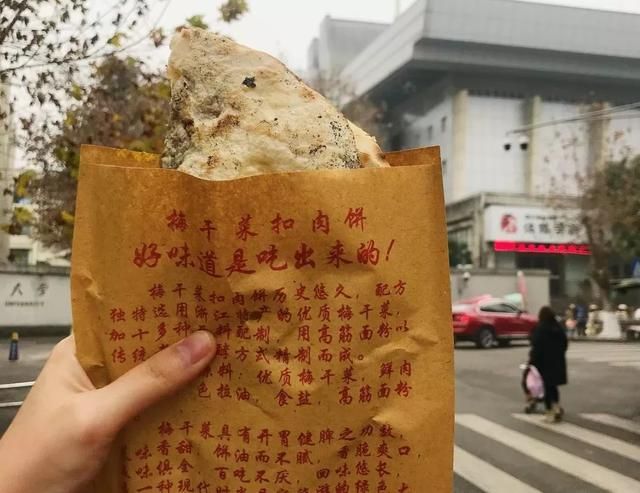 梅干菜扣肉饼
好味道是吃出来的!
梅干菜扣肉饼历史悠久,配方
独特选用浙江特产的优质梅干菜,
加十多种料配制,用高筋面粉以
传统酵方式精制而成。
料:优质梅干菜,鲜肉
色拉油,食盐,高筋面粉
梅干菜具有开胃健脾之功效,
味香甜饼油而不腻,香脆爽口,
味俱全百吃不厌,回味悠长,
一种现代绿色
大学
UNIVERSITY